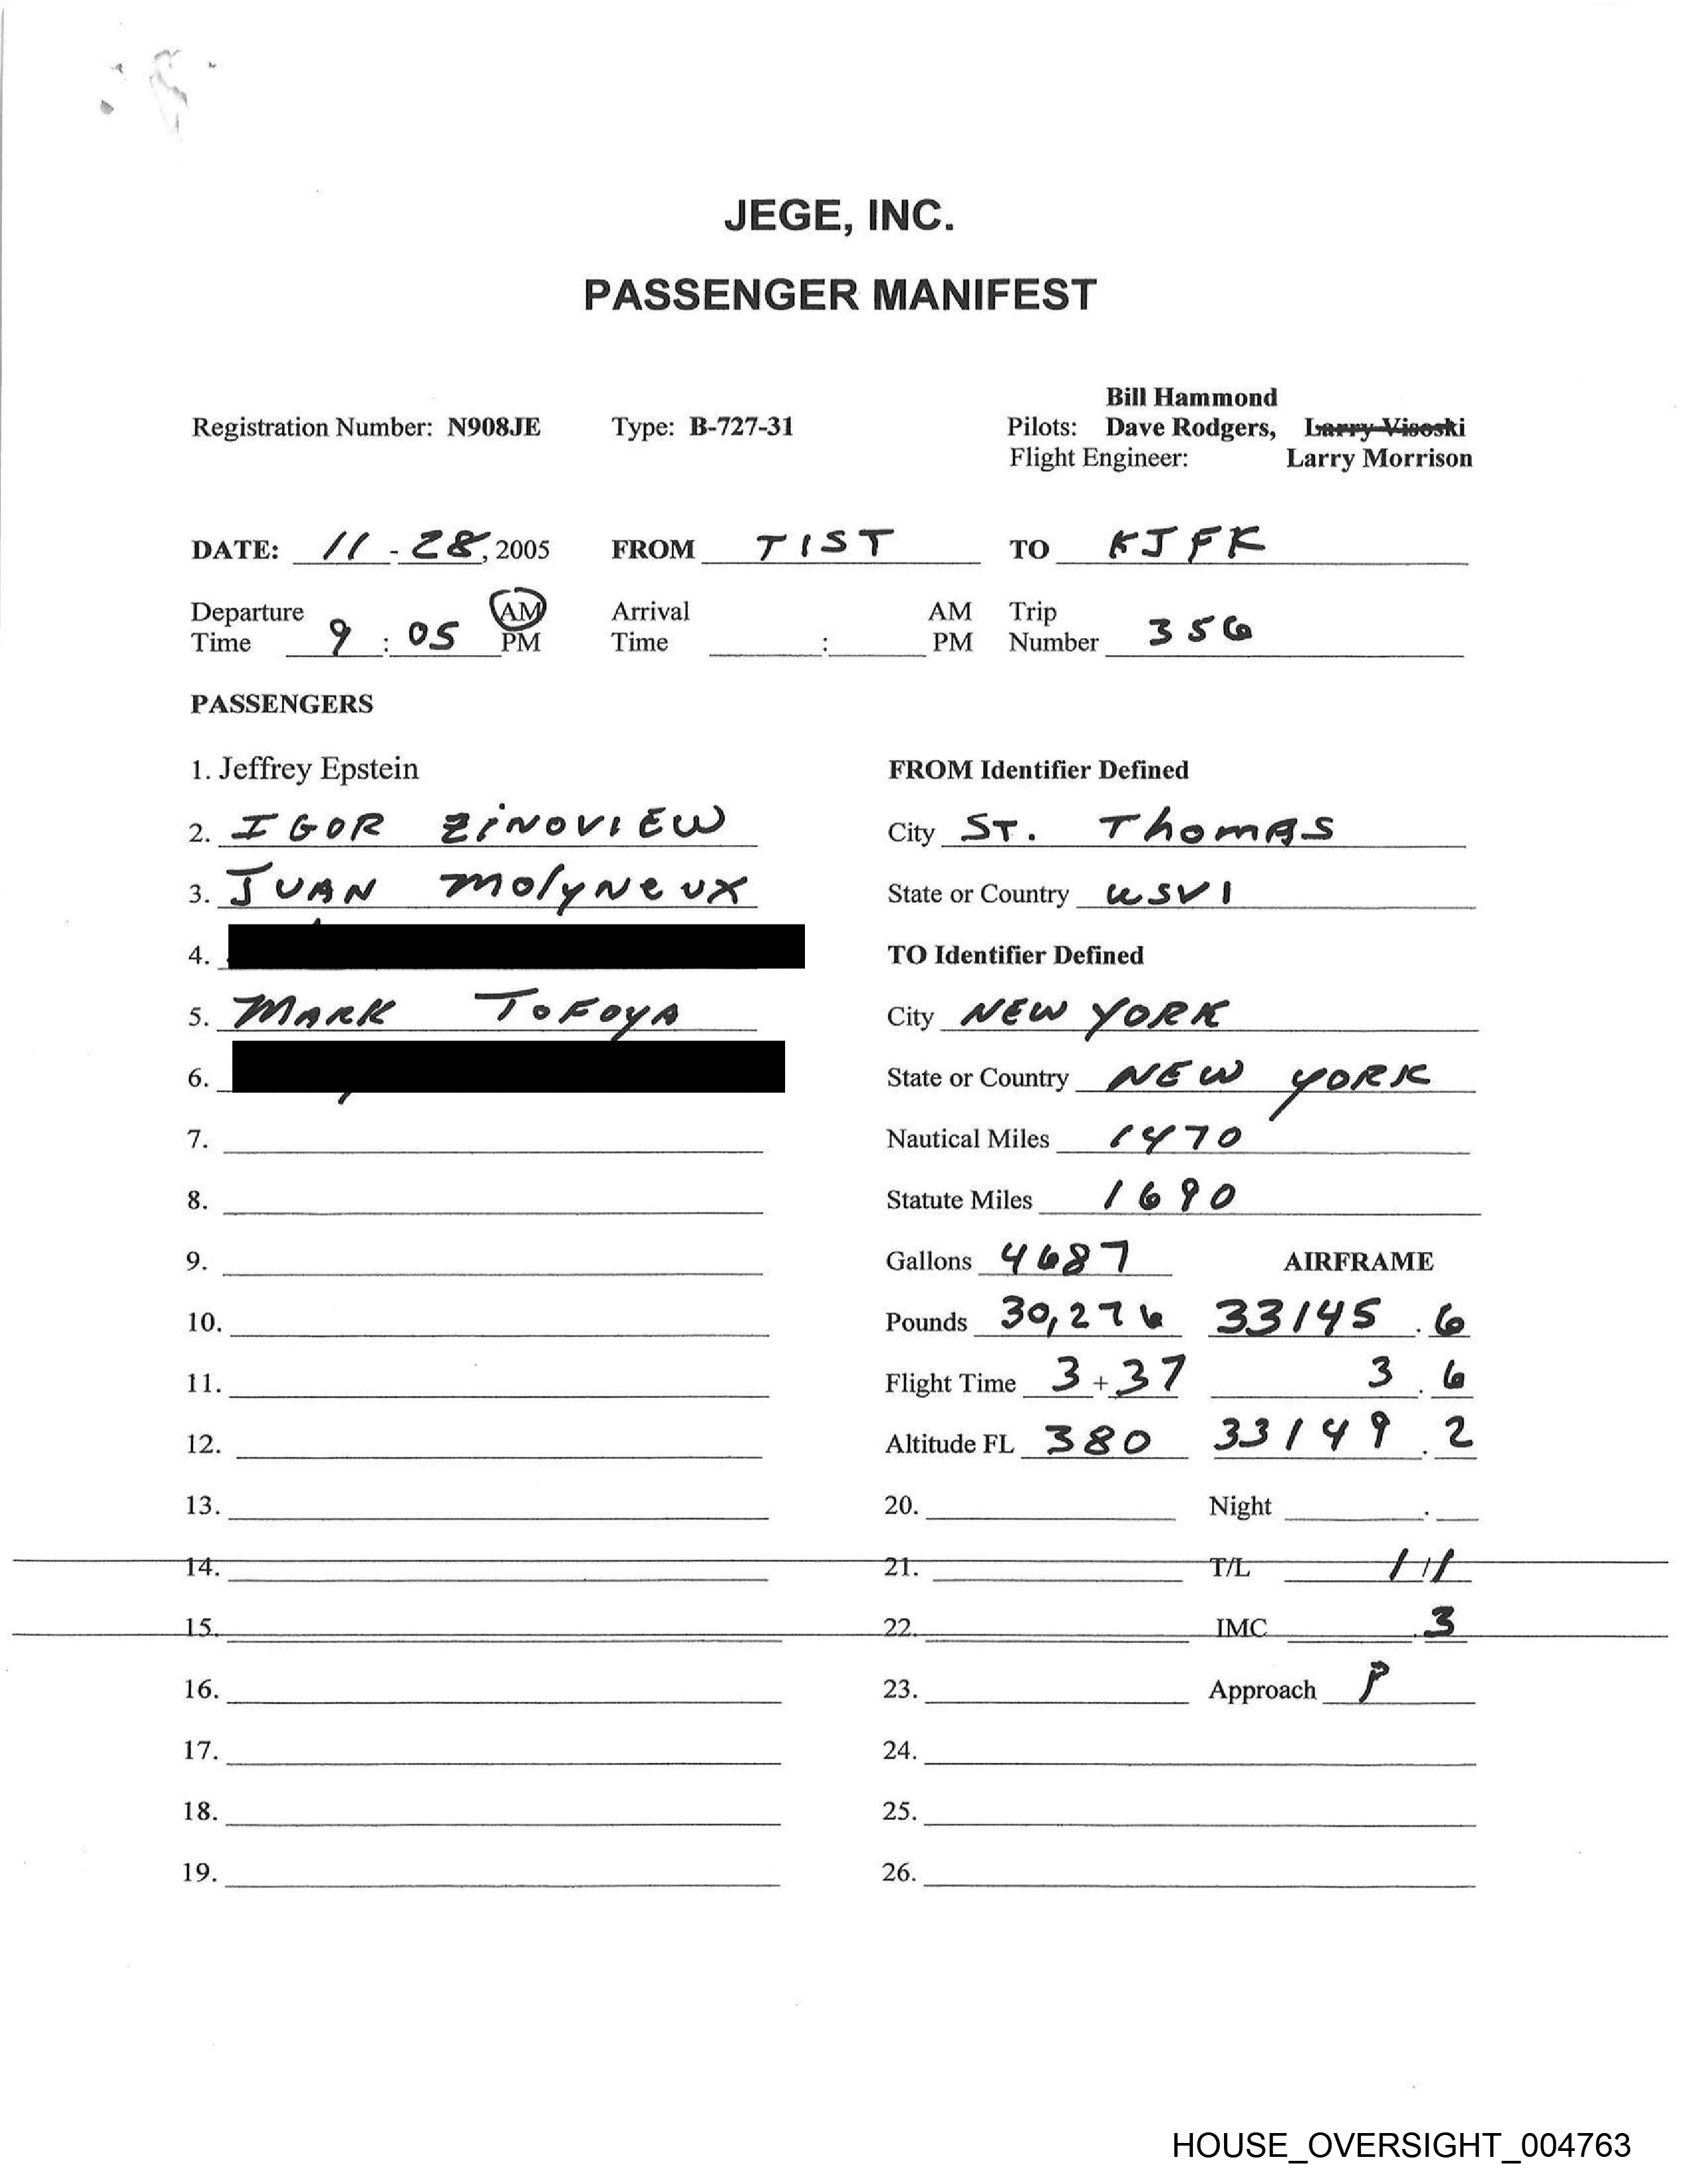 JEGE, INC.
PASSENGER MANIFEST
Bill Hammond
Registration Number: N908JE Type: B-727-31 Pilots: Dave Rodgers, Larry Visoski
Flight Engineer: Larry Morrison
DATE: 11 - 28, 2005 FROM TIST TO KJFK
Departure AM Arrival AM Trip
Time 9 : 05 PM Time : PM Number 356
PASSENGERS
1. Jeffrey Epstein FROM Identifier Defined
2. IGOR ZINOVIEW City ST. Thomas
3. JUAN Molyneux State or Country USVI
4. TO Identifier Defined
5. MARK TOFOYA City NEW YORK
6. State or Country NEW YORK
7. Nautical Miles 1470
8. Statute Miles 1690
9. Gallons 4687 AIRFRAME
10. Pounds 30,276 33145 . 6
11. Flight Time 3 + 37 3 . 6
12. Altitude FL 380 33149 . 2
13. 20. Night .
14. 21. T/L 1 / 1
15. 22. IMC .3
16. 23. Approach P
17. 24.
18. 25.
19. 26.
HOUSE_OVERSIGHT_004763